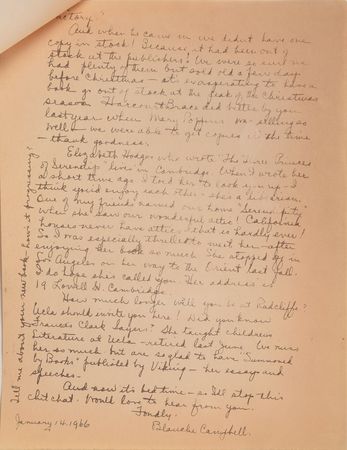 And when he came in we didnt have one
copy in stock! Because it had been out of
stock at the publishers! We were so sure we
had plenty of them but sold old a few days
before Christmas – it's exasperating to have a
book go out of stock at the peak of the Christmas
season. Harcourt Brace did better by you
last year when Mary Poppins was selling so
well – we were able to get copies all the time
– thank goodness.
Elizabeth Hodges who wrote "The Three Princes
of Serendip" lives in Cambridge. When I wrote her
a short time ago I told her to look you up – I
think you'd enjoy each other. She's a dream.
One of my friends named our home "Serendipity"
when she saw our wonderful attic! California
houses never have attics, that is hardly ever!
So I was especially thrilled to meet her – after
enjoying her book so much. She stopped by in
Los Angeles on her way to the Orient last fall.
I do hope she's called you. Her address is
19 Lowell St. Cambridge.
How much longer will you be at Radcliffe?
Ucla should invite you here! Did you know
Frances Clark Sayers? She taught childrens
Literature at Ucla – retired last June. We miss
her so much but are so glad to have "Summoned
by Books" published by Viking – her essays and
speeches.
And now its bedtime – so I'll stop this
chit chat. Would love to hear from you.
Fondly,
Blanche Campbell.
January 14, 1966
Tell me about your new book – how is it progressing?